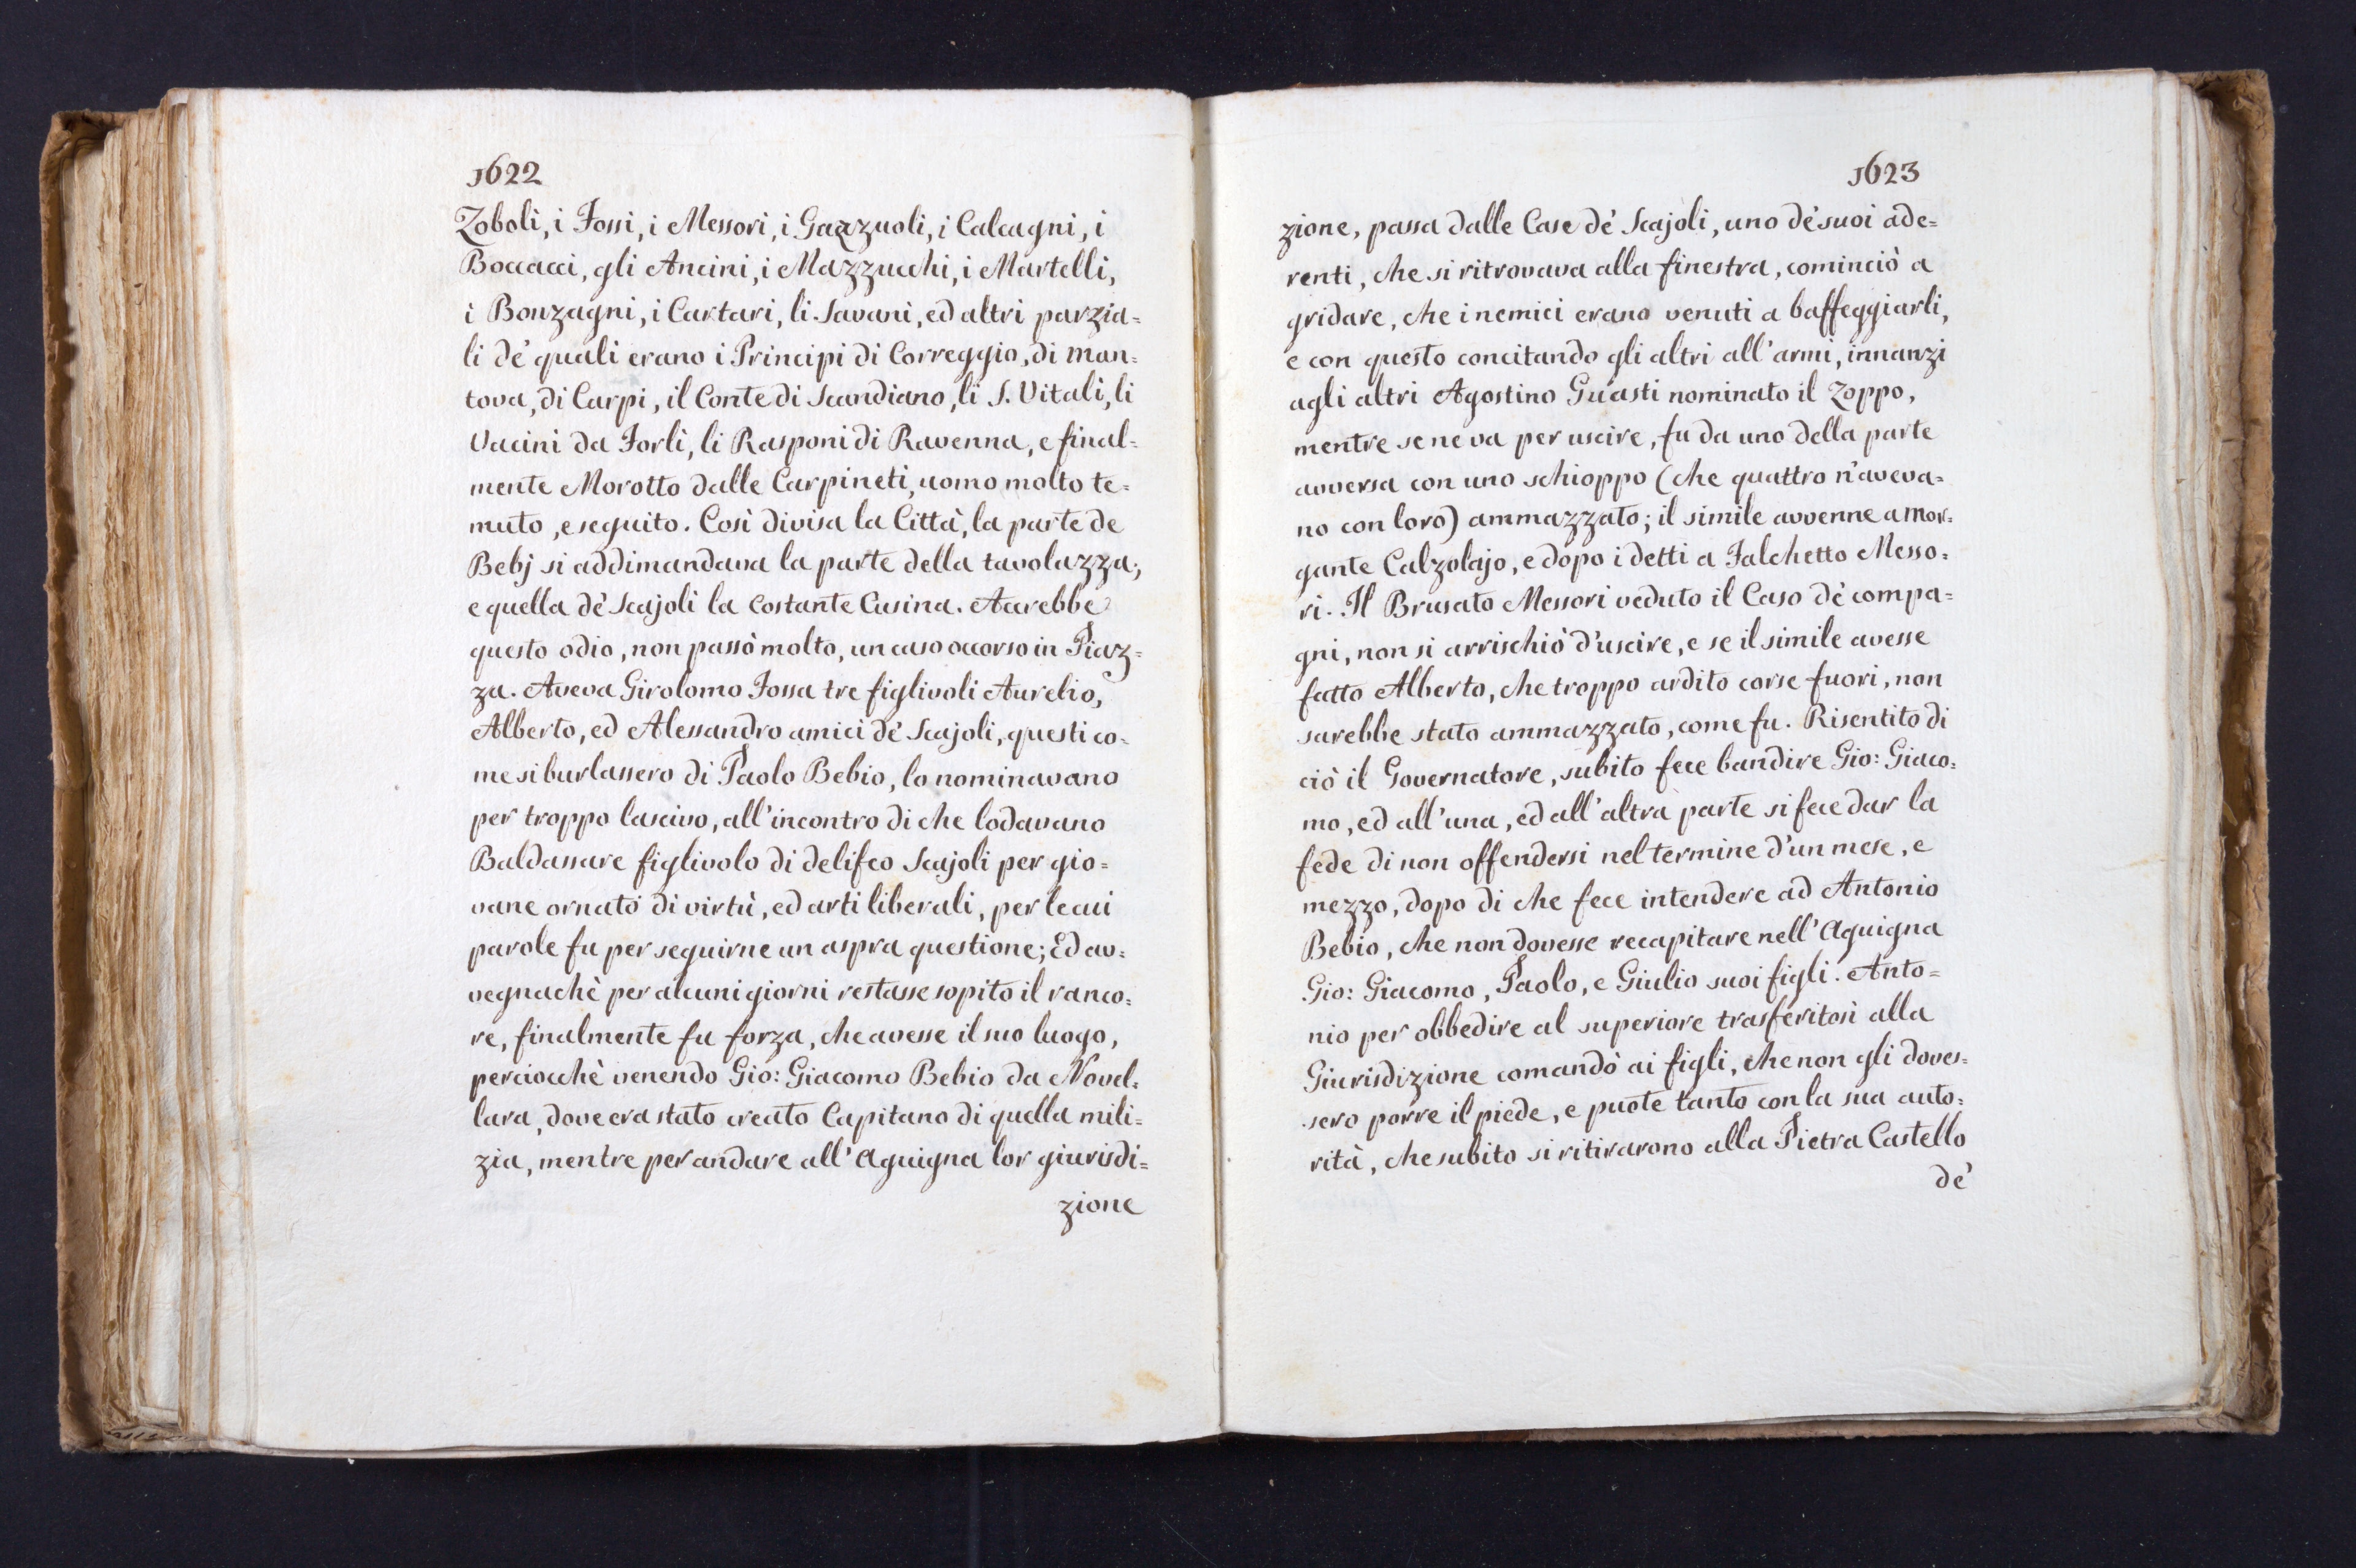 1622
Zoboli, i Fossi, i Messori, i Gazzuoli, i Calcagni, i
Boccacci, gli Ancini, i Mazzucchi, i Martelli,
i Bonzagni, i Cartari, li Savani, ed altri parzia=
li de' quali erano i Principi di Correggio, di Man=
tova, di Carpi, il Conte di Scandiano, li S. Vitali, li
Vacini da Forlì, li Rasponi di Ravenna, e final=
mente Morotto dalle Carpineti, uomo molto te=
muto, e seguito. Così divisa la Città, la parte de
Bebj si addimandava la parte della tavolazza;
e quella de' Scajoli la Costante Cusina. Accrebbe
questo odio, non passò molto, un caso occorso in Piaz=
za. Aveva Girolomo Fossa tre figlivoli Aurelio,
Alberto, ed Alessandro amici de' Scajoli, questi co=
me si burlassero di Paolo Bebio, lo nominavano
per troppo lascivo, all'incontro di che lodavano
Baldassare figlivolo di delifeo Scajoli per gio=
vane ornato di virtù, ed arti liberali, per le cui
parole fu per seguirne un aspra questione; Ed av=
vegnachè per alcuni giorni restasse sopito il ranco=
re, finalmente fu forza, che avesse il suo luogo,
perciocchè venendo Gio: Giacomo Bebio da Novel=
lara, dove era stato creato Capitano di quella mili=
zia, mentre per andare all'Aquigna lor giurisdi=
zione
1623
zione, passa dalle Case de' Scajoli, uno de' suoi ade=
renti, che si ritrovava alla finestra, cominciò a
gridare, che i nemici erano venuti a baffeggiarli,
e con questo concitando gli altri all'armi, innanzi
agli altri Agostino Guasti nominato il Zoppo,
mentre se ne va per uscire, fu da uno della parte
avversa con uno schioppo (che quattro n'aveva=
no con loro) ammazzato; il simile avvenne a Mor=
gante Calzolajo, e dopo i detti a Falchetto Messo=
ri. Il Brusato Messori veduto il Caso de' compa=
gni, non si arrischiò d'uscire, e se il simile avesse
fatto Alberto, che troppo ardito corse fuori, non
sarebbe stato ammazzato, come fu. Risentito di
ciò il Governatore, subito fece bandire Gio: Giaco=
mo, ed all'una, ed all'altra parte si fece dar la
fede di non offendersi nel termine d'un mese, e
mezzo, dopo di che fece intendere ad Antonio
Bebio, che non dovesse recapitare nell'Aquigna
Gio: Giacomo, Paolo, e Giulio suoi figli. Anto=
nio per obbedire al superiore trasferitosi alla
Giurisdizione comandò ai figli, che non gli doves=
sero porre il piede, e puote tanto con la sua auto=
rità, che subito si ritirarono alla Pietra Castello
de'